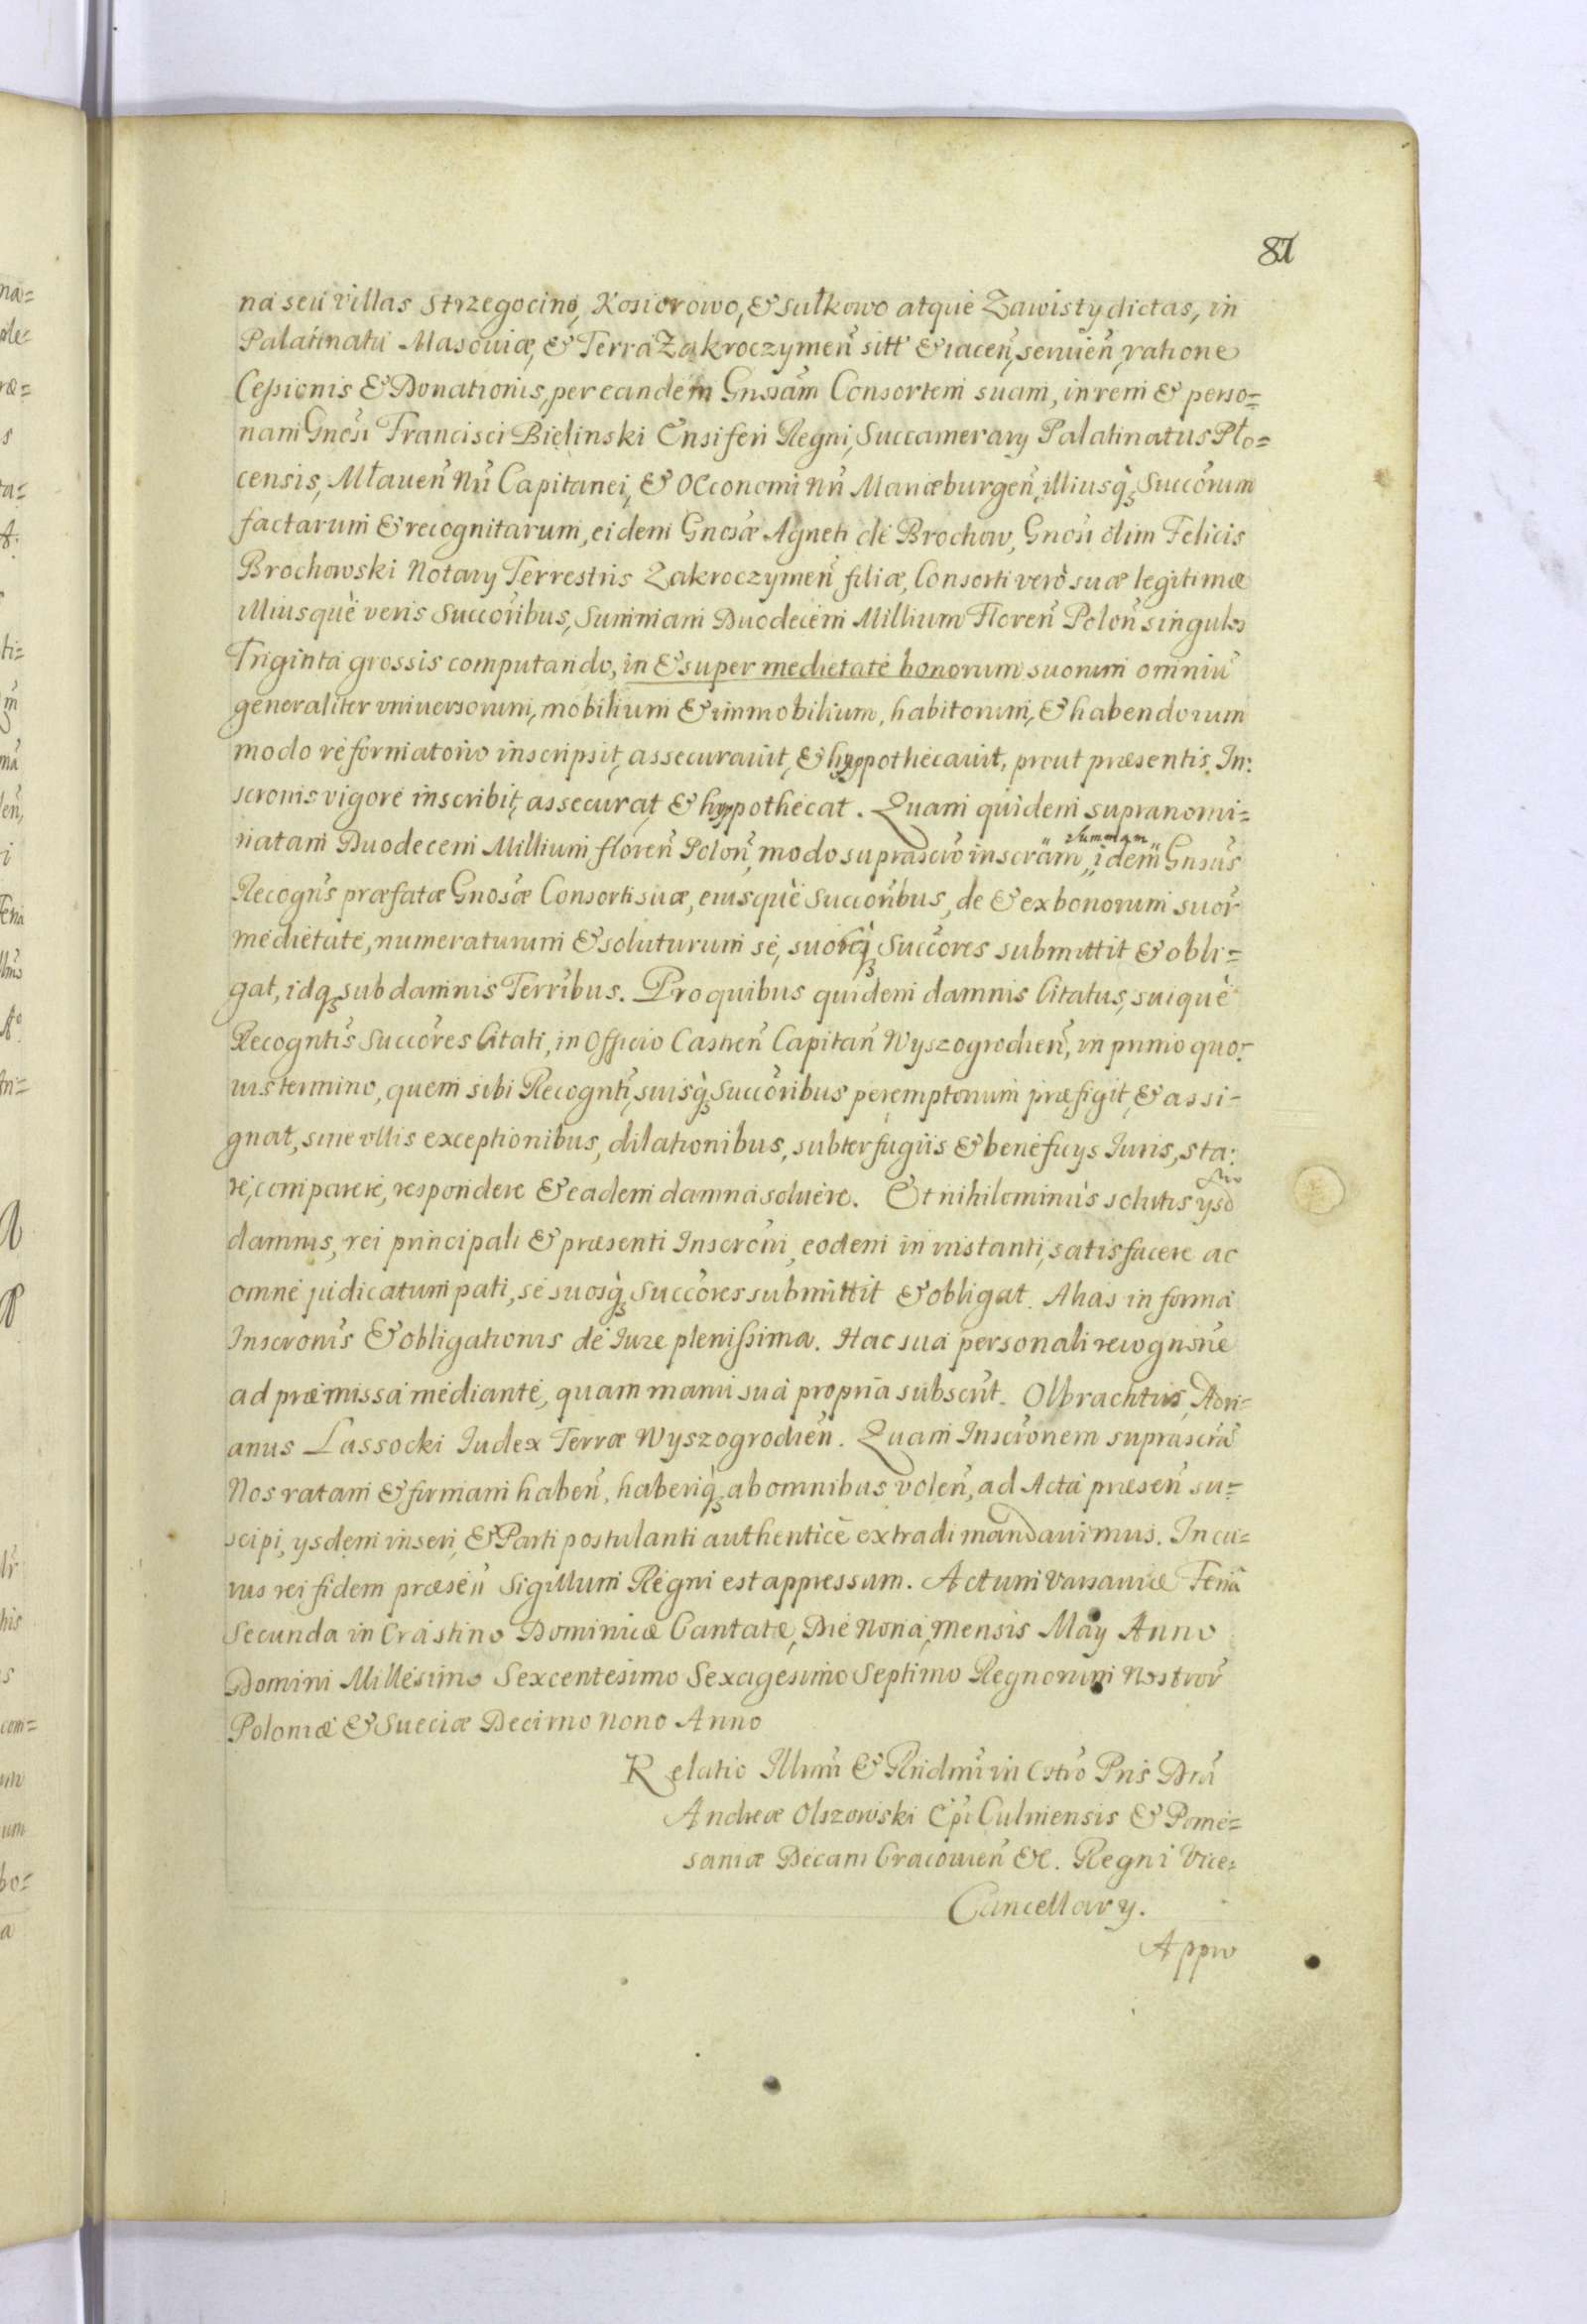 81
na seu villas Strzegocino, Kosiorowo, & Sułkowo atque Zawisty dictas, in
Palatinatu Masouiæ, & Terra Zakroczymen̄ sitt̄ & iacen̄, seruien̄, ratione
Cessionis & Donationis, per eandem Gnsām Consortem suam, in rem & perso=
nam Gnosi Francisci Bielinski Ensiferi Regni, Succamerary Palatinatus Plo=
censis, Mławen̄ nri Capitanei, & OEconomi nri Mariæburgen̄, illiusq̃ Succōrum
factarum & recognitarum, eidem Gnosæ Agneti de Brochow, Gnosi olim Felicis
Brochowski Notary Terrestris Zakroczymen̄ filiæ, Consorti verò suæ legitimæ
illiusquè veris Succōribus, Summam Duodecem Millium Floren̄ Polon̄ singulos
Triginta grossis computando, in & super medietate bonorum suorum omniū
generaliter vniuersorum, mobilium & immobilium, habitorum, & habendorum
modo reformatorio inscripsit, assecurauit, & hyppothecauit, prout præsentis In:
scrōnis vigore inscribit, assecurat & hyppothecat. Quam quidem supranomi=
natam Duodecem Millium floren̄ Polon̄, modo suprascr̄o inscrām „Summam„ idem Gnsūs
Recognīs præfatæ Gnosæ Consorti suæ, eiusquè Succōribus, de & ex bonorum suor̄
medietate, numeraturum & soluturum se, suosq̃ Succōres submittit & obli=
gat, idq̃ sub damnis Terrībus. Pro quibus quidem damnis Citatus, suique
Recogntīs Succōres Citati, in Officio Castren̄ Capitan̄ Wyszogrodien̄, in primo quo:
uis termino, quem sibi Recogntī, suisq̃ Succōribus peremptorium præfigit, & assi-
gnat, sine vllis exceptionibus, dilationibus, subterfugiis & beneficys Iuris, sta:
re, comparere, respondere & eadem damna soluere. Et nihilominùs solutis ysd̄
damnis, rei principali & præsenti Inscrōni, eodem in instanti, satisfacere ac
omne iudicatum pati, se suosq̃ Succōres submittit & obligat. Alias in forma
Inscrōnis & obligationis de Iure plenissima. Hac sua personali recognisne
ad præmissa mediante, quam manu sua propria subscrīt. Olbrachtus Adri=
anus Lassocki Iudex Terræ Wyszogrodien̄. Quam Inscrōnem suprascrā
Nos ratam & firmam haben̄, haberiq̃ ab omnibus volen̄, ad Acta præsen̄ su=
scipi, ysdem inseri, & Parti postulanti authenticè extradi mandauimus. In cu=
ius rei fidem præsen̄ Sigillum Regni est appressum. Actum Varsauiæ Feria
Secunda in Crastino Dominicæ Cantatæ, Die Nona, mensis May Anno
Domini Millesimo Sexcentesimo Sexagesimo Septimo Regnorum Nostror̄
Poloniæ & Sueciæ Decimo Nono Anno
Relatio Illmi & Rndmi in Cstro Pris Dnī
Andreæ Olszowski Epi Culmensis & Pome=
saniæ Decani Cracouien̄ &c. Regni Vice=
Cancellary.
Appro